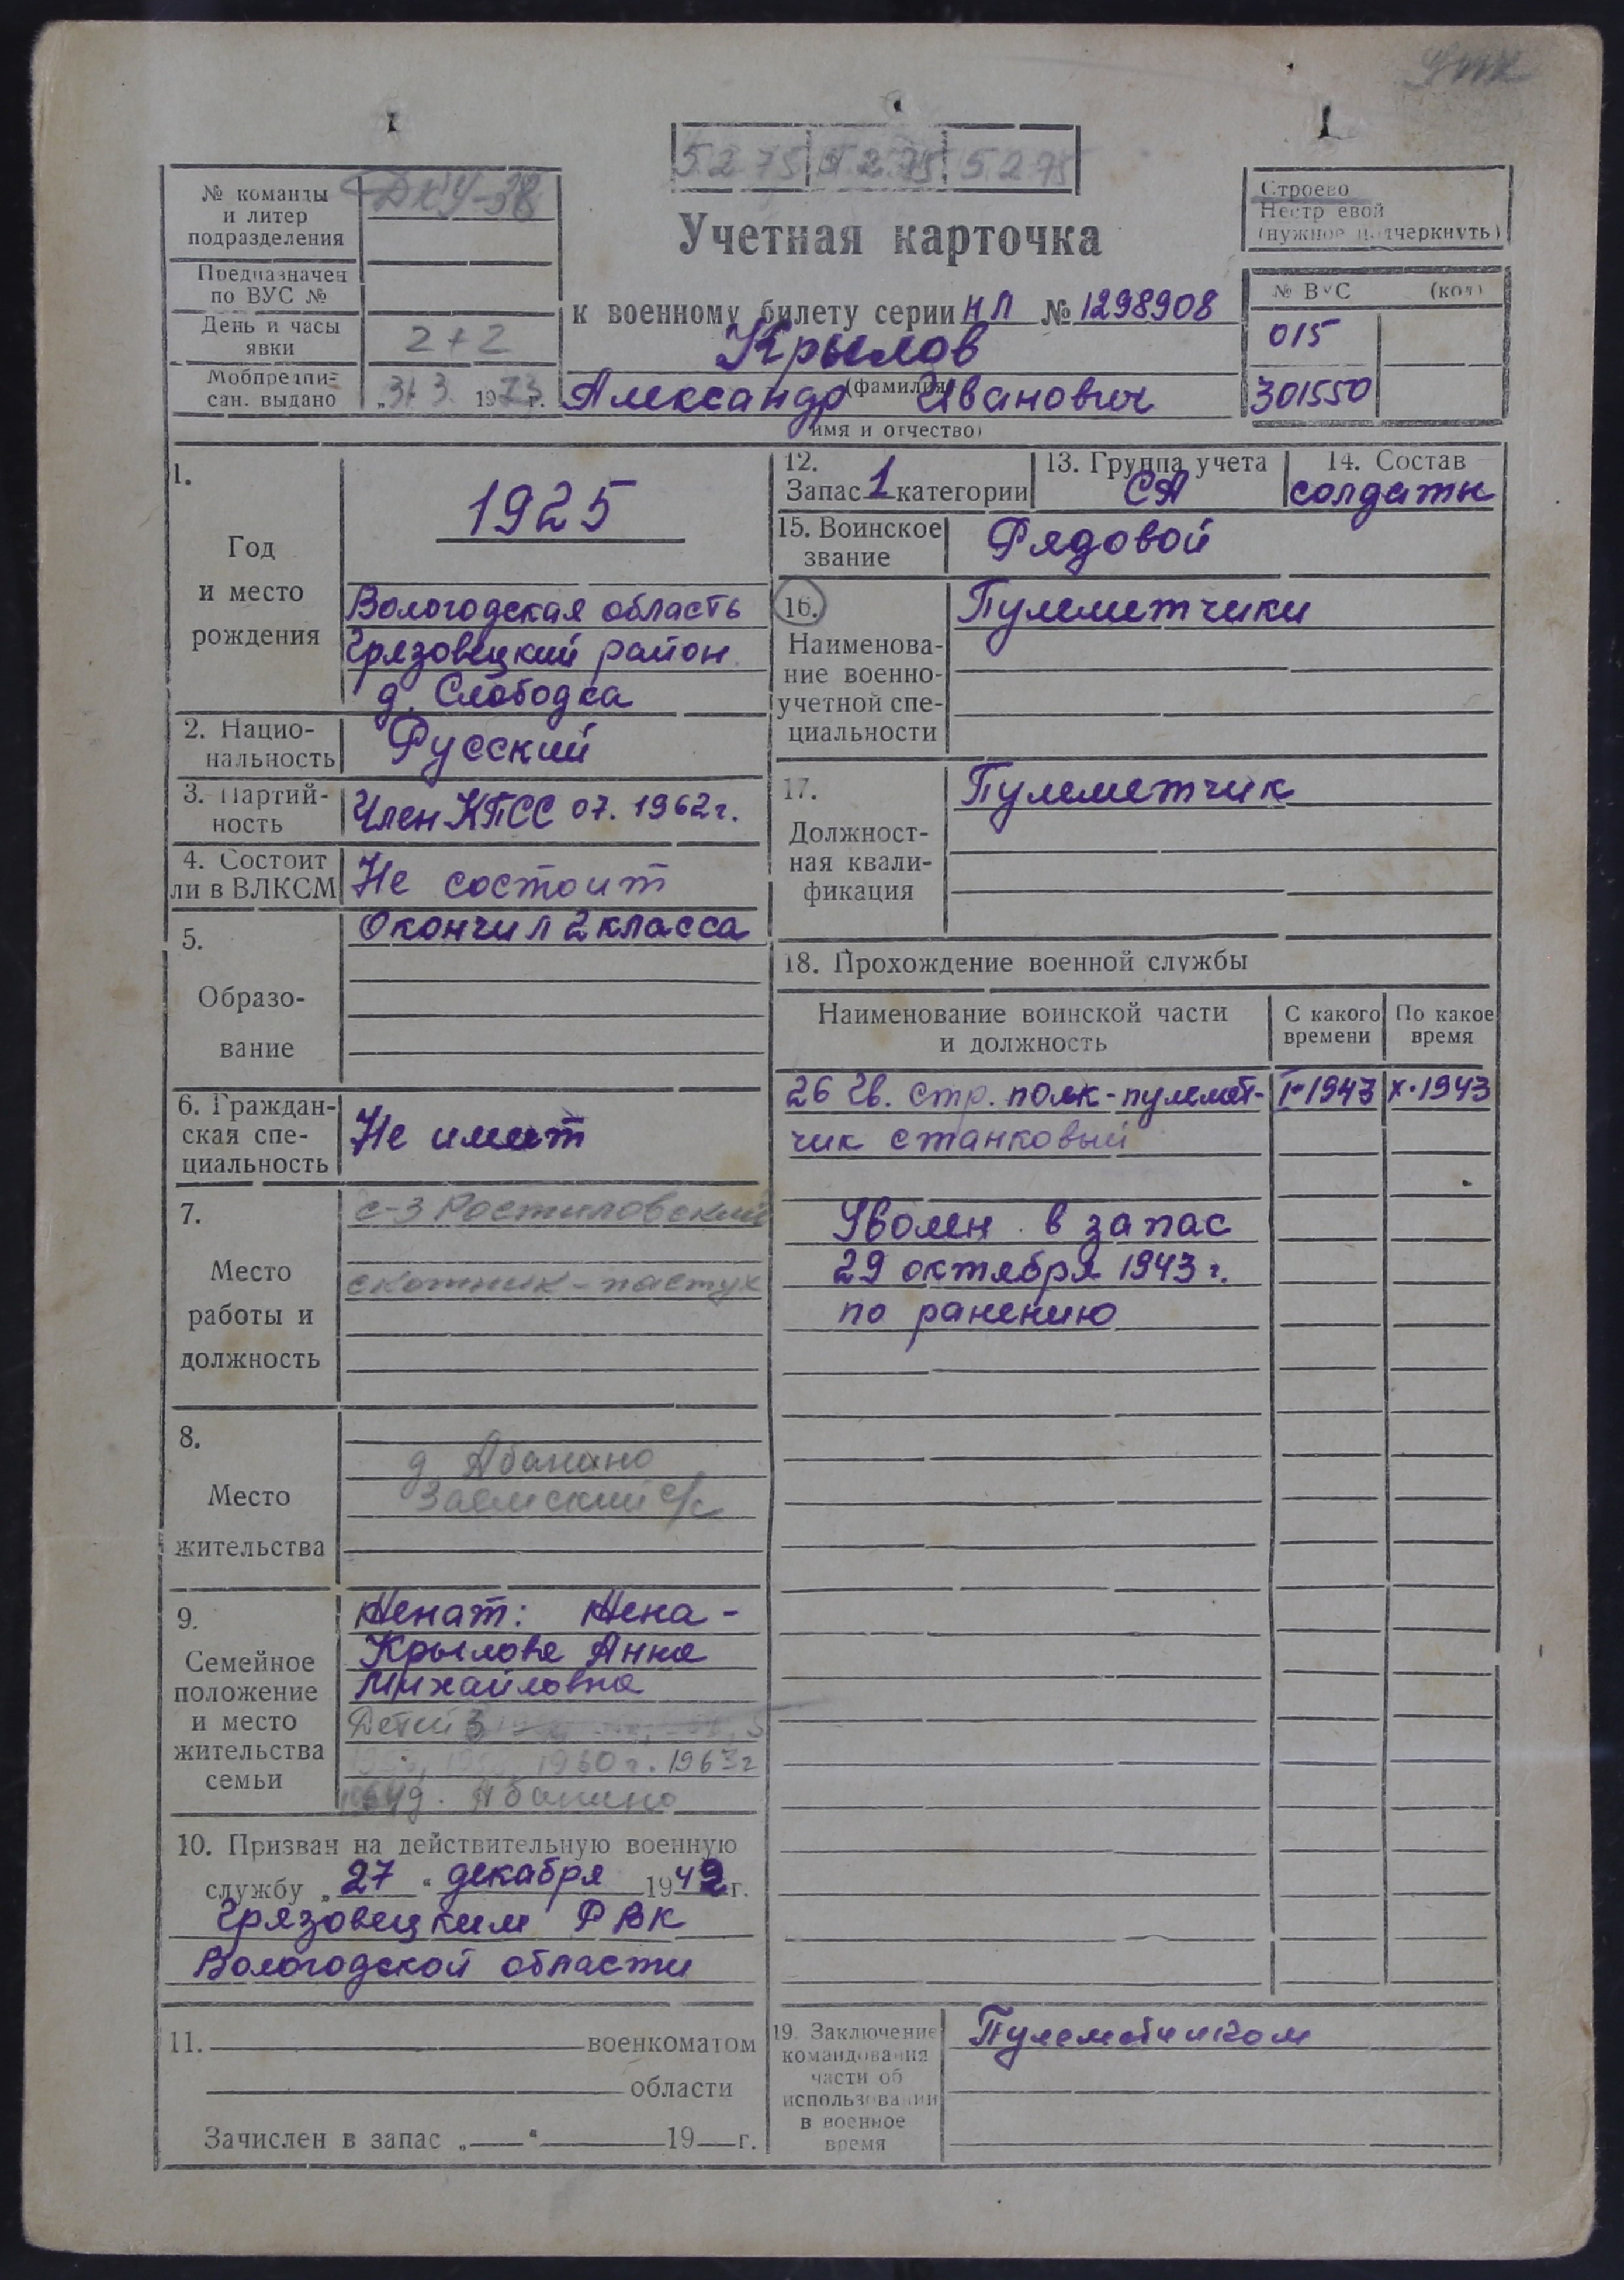 5.2.75 5.2.75 5.2.75
№ команды и литер подразделения
ДКУ-38
Предназначен по ВУС №
День и часы явки
2+2
Мобпредпи-
сан. выдано „31 3. 1973 г.
Учетная карточка
к военному билету серии НЛ № 1298908
Крылов
(фамилия)
Александр Иванович
имя и отчество)
Строево
Нестроевой
(нужное подчеркнуть)
№ ВУС (код)
015
301550
1.
Год
и место
рождения
1925
Вологодская область
Грязовецкий район
д. Слободка
2. Нацио-
нальность
Русский
3. Партий-
ность
Член КПСС 07. 1962 г.
4. Состоит
ли в ВЛКСМ
Не состоит
5.
Образо-
вание
Окончил 2 класса
6. Граждан-
ская спе-
циальность
Не имеет
7.
Место
работы и
должность
с-з Ростиловский
скотник-пастух
8.
Место
жительства
д Абакино
Заемский с/с
9.
Семейное
положение
и место
жительства
семьи
Женат: Жена -
Крылова Анна
Михайловна
Детей 3
1960 г. 1963 г
д. Абакино
10. Призван на действительную военную
службу „27“ декабря 1942 г.
Грязовецким РВК
Вологодской области
11. военкоматом
области
Зачислен в запас „ “ 19 г.
12.
Запас 1 категории
13. Группа учета
СА
14. Состав
солдаты
15. Воинское
звание
Рядовой
16.
Наименова-
ние военно-
учетной спе-
циальности
Пулеметчики
17.
Должност-
ная квали-
фикация
Пулеметчик
18. Прохождение военной службы
Наименование воинской части
и должность
С какого
времени
По какое
время
26 Гв. стр. полк - пулемет- I-1943 X.1943
чик станковый
Уволен в запас
29 октября 1943 г.
по ранению
19. Заключение
командования
части об
использовании
в военное
время
Пулеметчиком